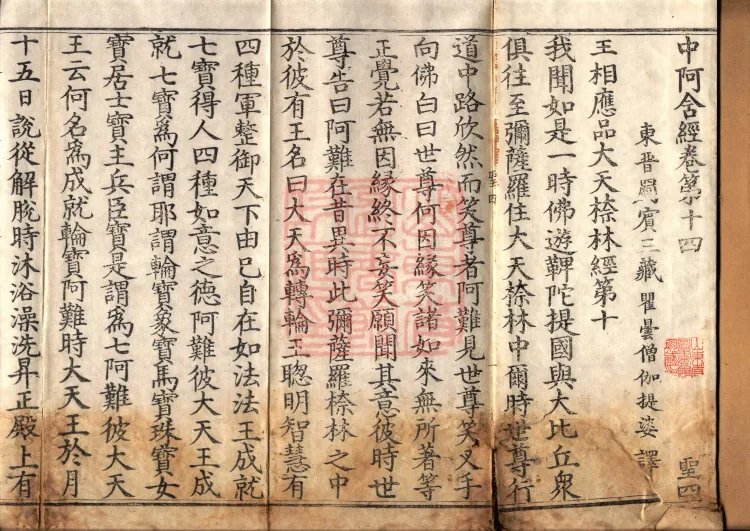 中阿含經卷第十四 聖四
東晉罽賓三藏瞿曇僧伽提婆譯
王相應品大天㮈林經第十
我聞如是一時佛遊鞞陀提國與大比丘衆
俱往至彌薩羅住大天㮈林中爾時世尊行
道中路欣然而笑尊者阿難見世尊笑叉手
聖四
向佛白曰世尊何因緣笑諸如來無所著等
正覺若無因緣終不妄笑願聞其意彼時世
尊告曰阿難在昔異時此彌薩羅㮈林之中
於彼有王名曰大天爲轉輪王聰明智慧有
四種軍整御天下由已自在如法法王成就
七寶得人四種如意之德阿難彼大天王成
就七寶爲何謂耶謂輪寶象寶馬寶珠寶女
寶居士寶主兵臣寶是謂爲七阿難彼大天
王云何名爲成就輪寶阿難時大天王於月
十五日說從解脫時沐浴澡洗昇正殿上有